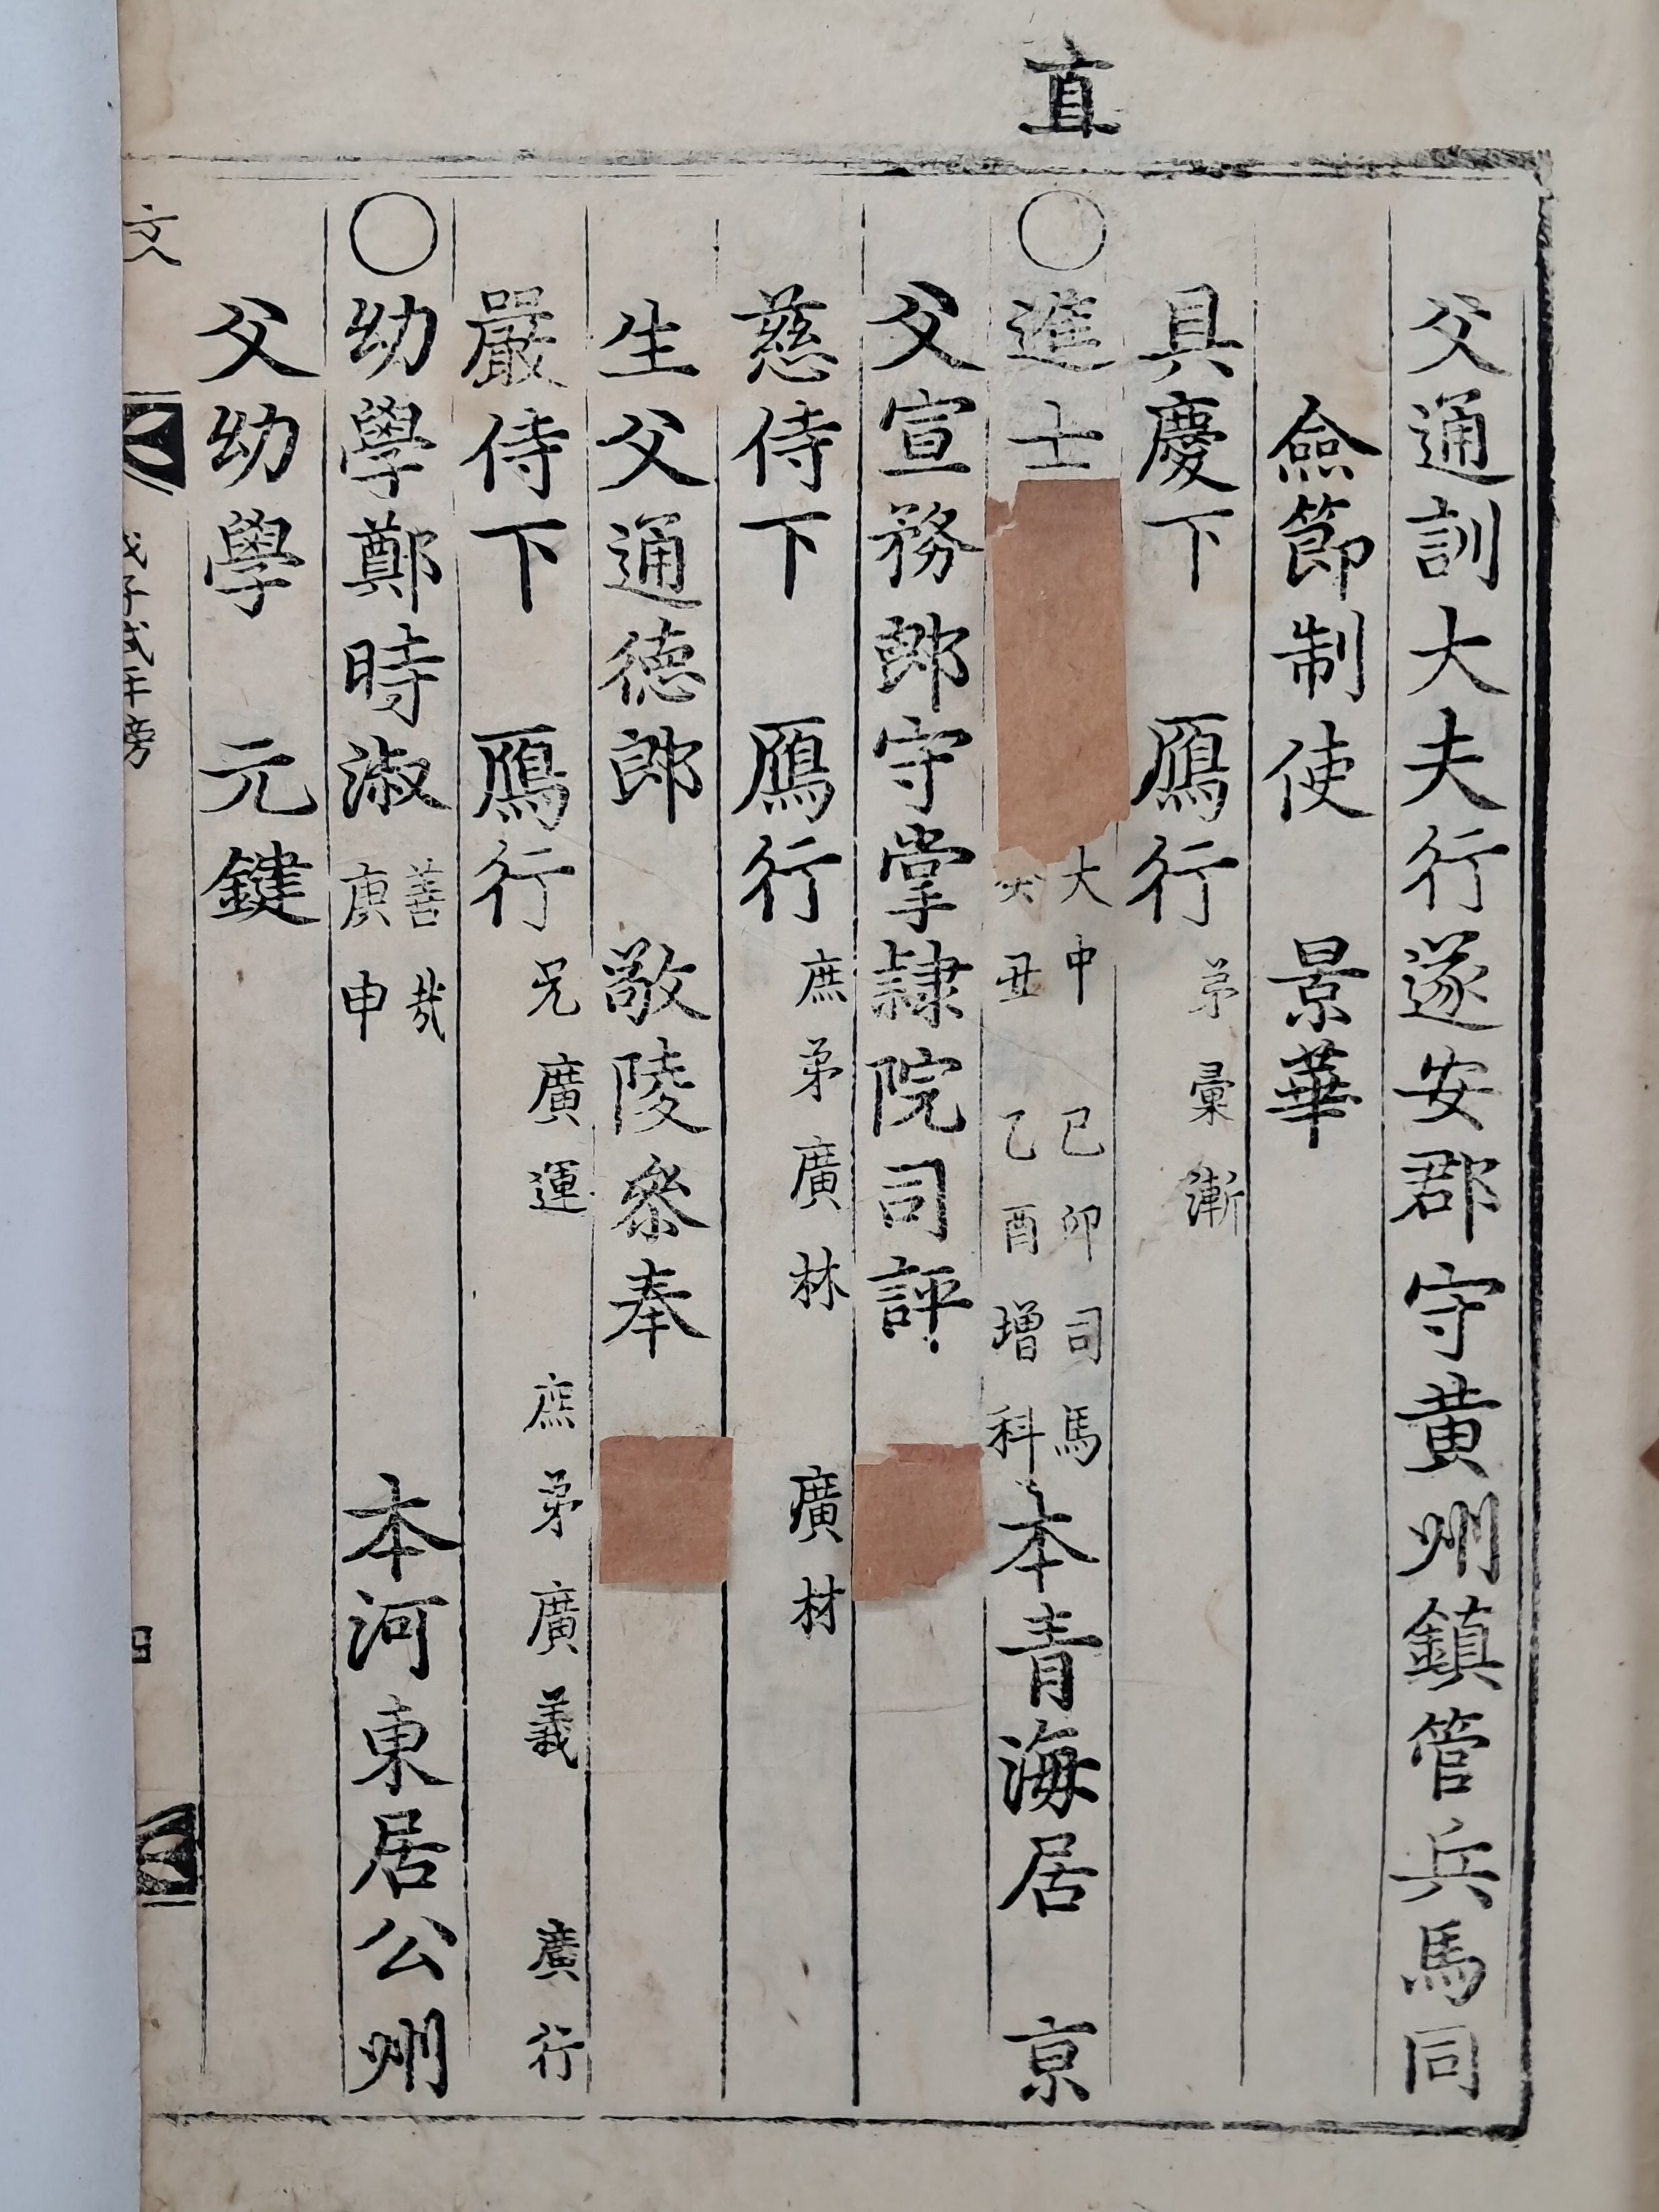 直
父通訓大夫行遂安郡守黄州鎮管兵馬同
僉節制使 景華
具慶下 鴈行 弟彙漸
〇進士 大中 己卯司馬
丑 乙酉增科 本青海居 京
父宣務郎守掌隷院司評
慈侍下 鴈行 庶弟廣林 廣材
生父通德郎 敬陵叅奉
嚴侍下 鴈行 兄廣運 庶弟廣義 廣行
〇幼學鄭時淑 善哉
庚申 本河東居公州
父幼學 元鍵
文
戊子式年榜
四